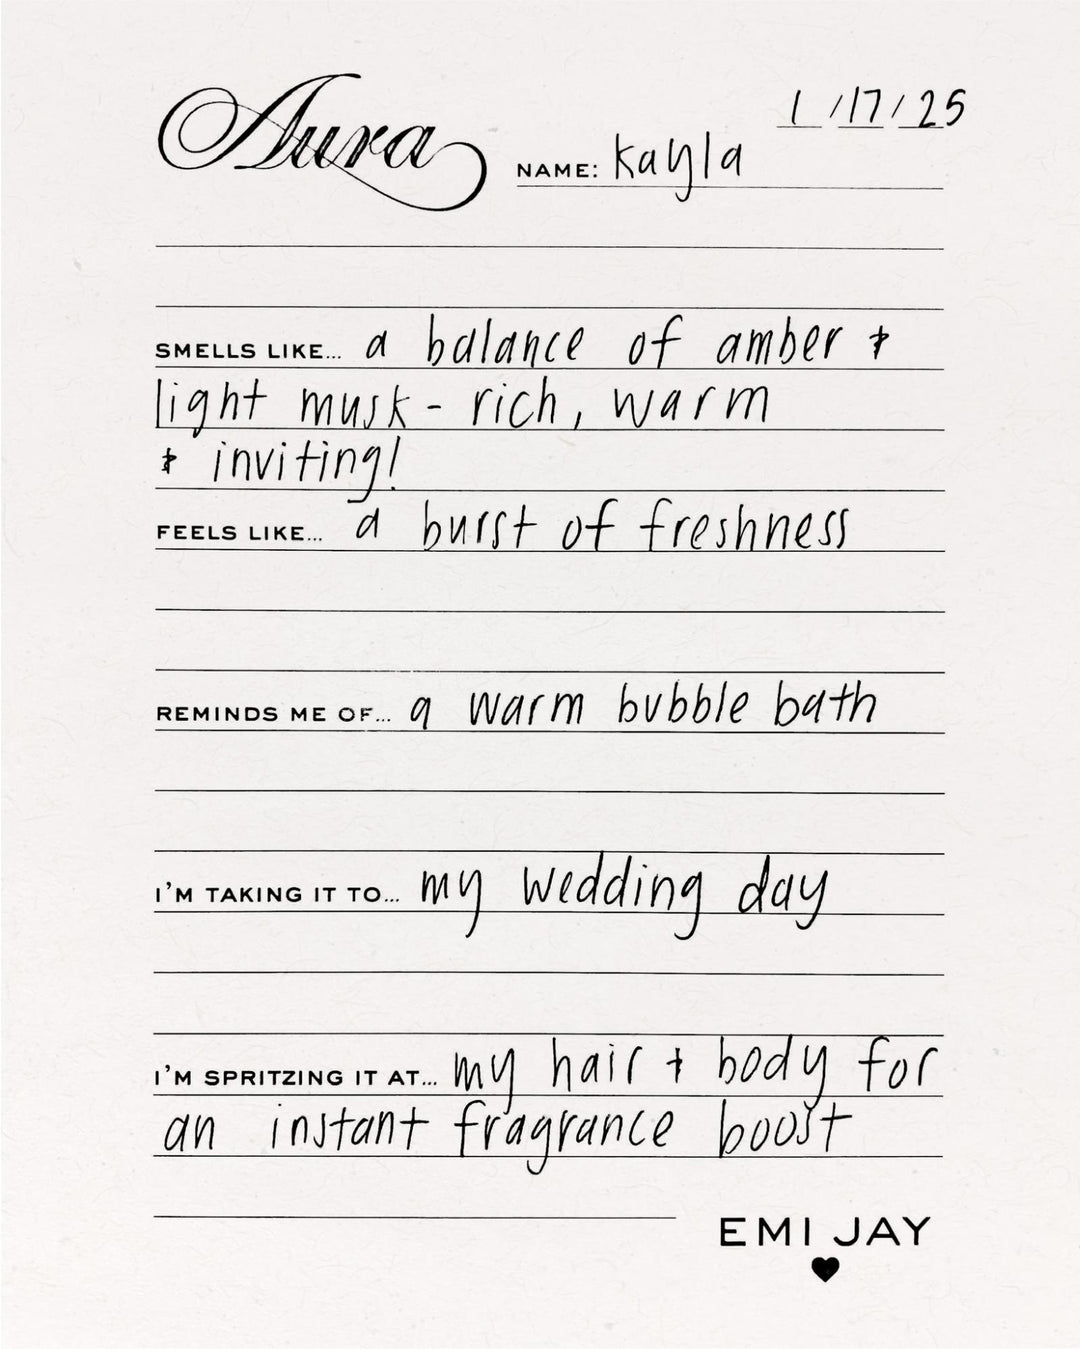 1/17/25
Aura NAME: Kayla
SMELLS LIKE... a balance of amber +
light musk - rich, warm
+ inviting!
FEELS LIKE... a burst of freshness
REMINDS ME OF... a warm bubble bath
I'M TAKING IT TO... my wedding day
I'M SPRITZING IT AT... my hair + body for
an instant fragrance boost
EMI JAY